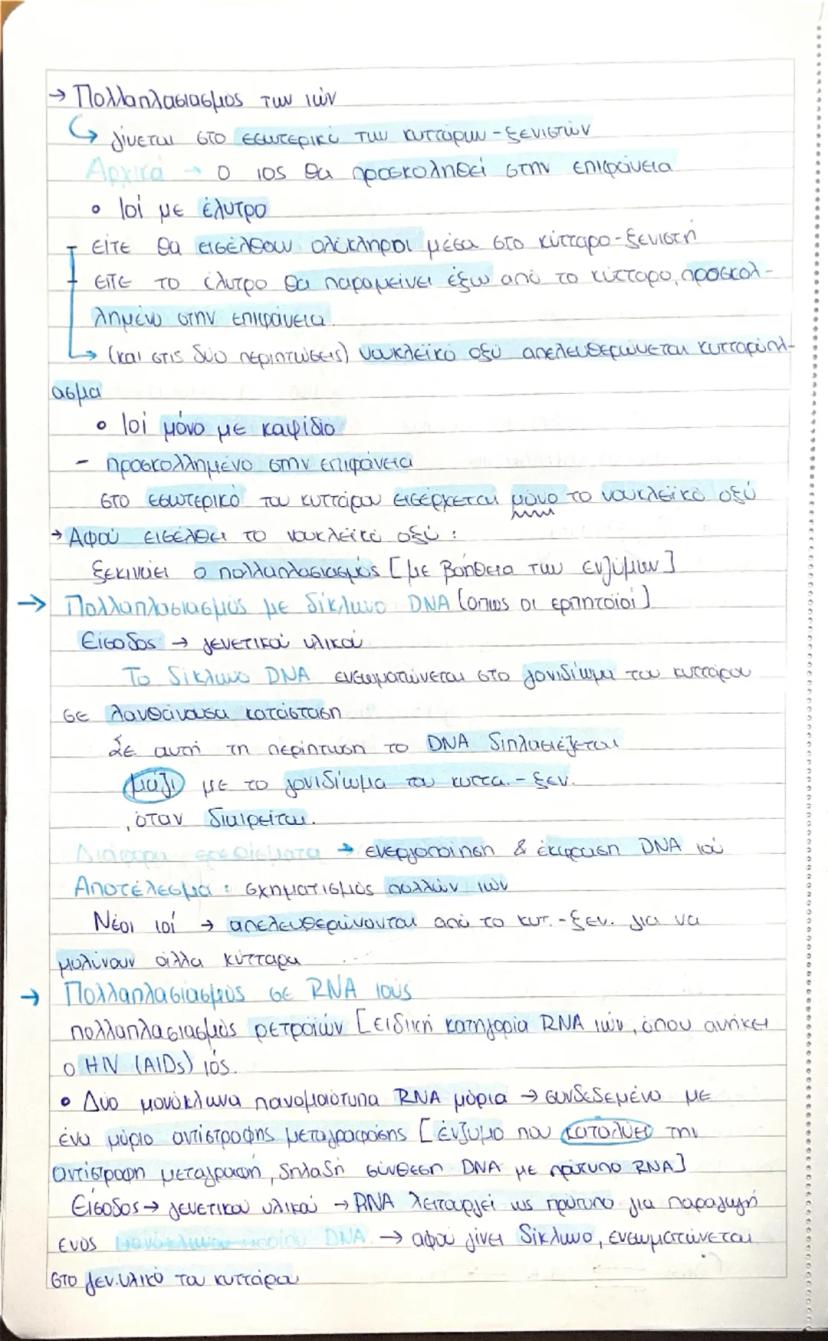 → Πολλαπλασιασμός των ιών
↳ γίνεται στο εσωτερικό των κυττάρων-ξενιστών
Αρχικά → Ο ιός θα προσκολληθεί στην επιφάνεια
• Ιοί με έλυτρο
- είτε θα εισέλθουν ολόκληροι μέσα στο κύτταρο-ξενιστή
- είτε το έλυτρο θα παραμείνει έξω από το κύτταρο, προσκολ-
λημένο στην επιφάνεια
→ (και στις δύο περιπτώσεις) νουκλεϊκό οξύ απελευθερώνεται κυτταρόπλ-
ασμα
• Ιοί μόνο με καψίδιο
- προσκολλημένο στην επιφάνεια
στο εσωτερικό του κυττάρου εισέρχεται μόνο το νουκλεϊκό οξύ
→ Αφού εισέλθει το νουκλεϊκό οξύ :
ξεκινάει ο πολλαπλασιασμός [με βοήθεια των ενζύμων]
→ Πολλαπλασιασμός με δίκλωνο DNA (όπως οι ερπητοϊοί]
Είσοδος → γενετικού υλικού
Το δίκλωνο DNA ενσωματώνεται στο γονιδίωμα του κυττάρου
σε λανθάνουσα κατάσταση
Σε αυτή τη περίπτωση το DNA διπλασιάζεται
μαζί με το γονιδίωμα του κυττα.-ξεν.
, όταν διαιρείται.
Διάφορα ερεθίσματα → ενεργοποίηση & έκφραση DNA ιού
Αποτέλεσμα : σχηματισμός πολλών ιών
Νέοι ιοί → απελευθερώνονται από το κυτ.-ξεν. για να
μολύνουν άλλα κύτταρα
→ Πολλαπλασιασμός σε RNA ιούς
πολλαπλασιασμός ρετροϊών [ειδική κατηγορία RNA ιών, όπου ανήκει
ο HIV (AIDs) ιός.
• Δύο μονόκλωνα πανομοιότυπα RNA μόρια → συνδεδεμένο με
ένα μόριο αντίστροφης μεταγραφάσης [ένζυμο που καταλύει την
αντίστροφη μεταγραφή, δηλαδή σύνθεση DNA με πρότυπο RNA]
Είσοδος → γενετικού υλικού → RNA λειτουργεί ως πρότυπο για παραγωγή
ενός μονόκλωνου μορίου DNA → αφού γίνει δίκλωνο, ενσωματώνεται
στο γεν. υλικό του κυττάρου